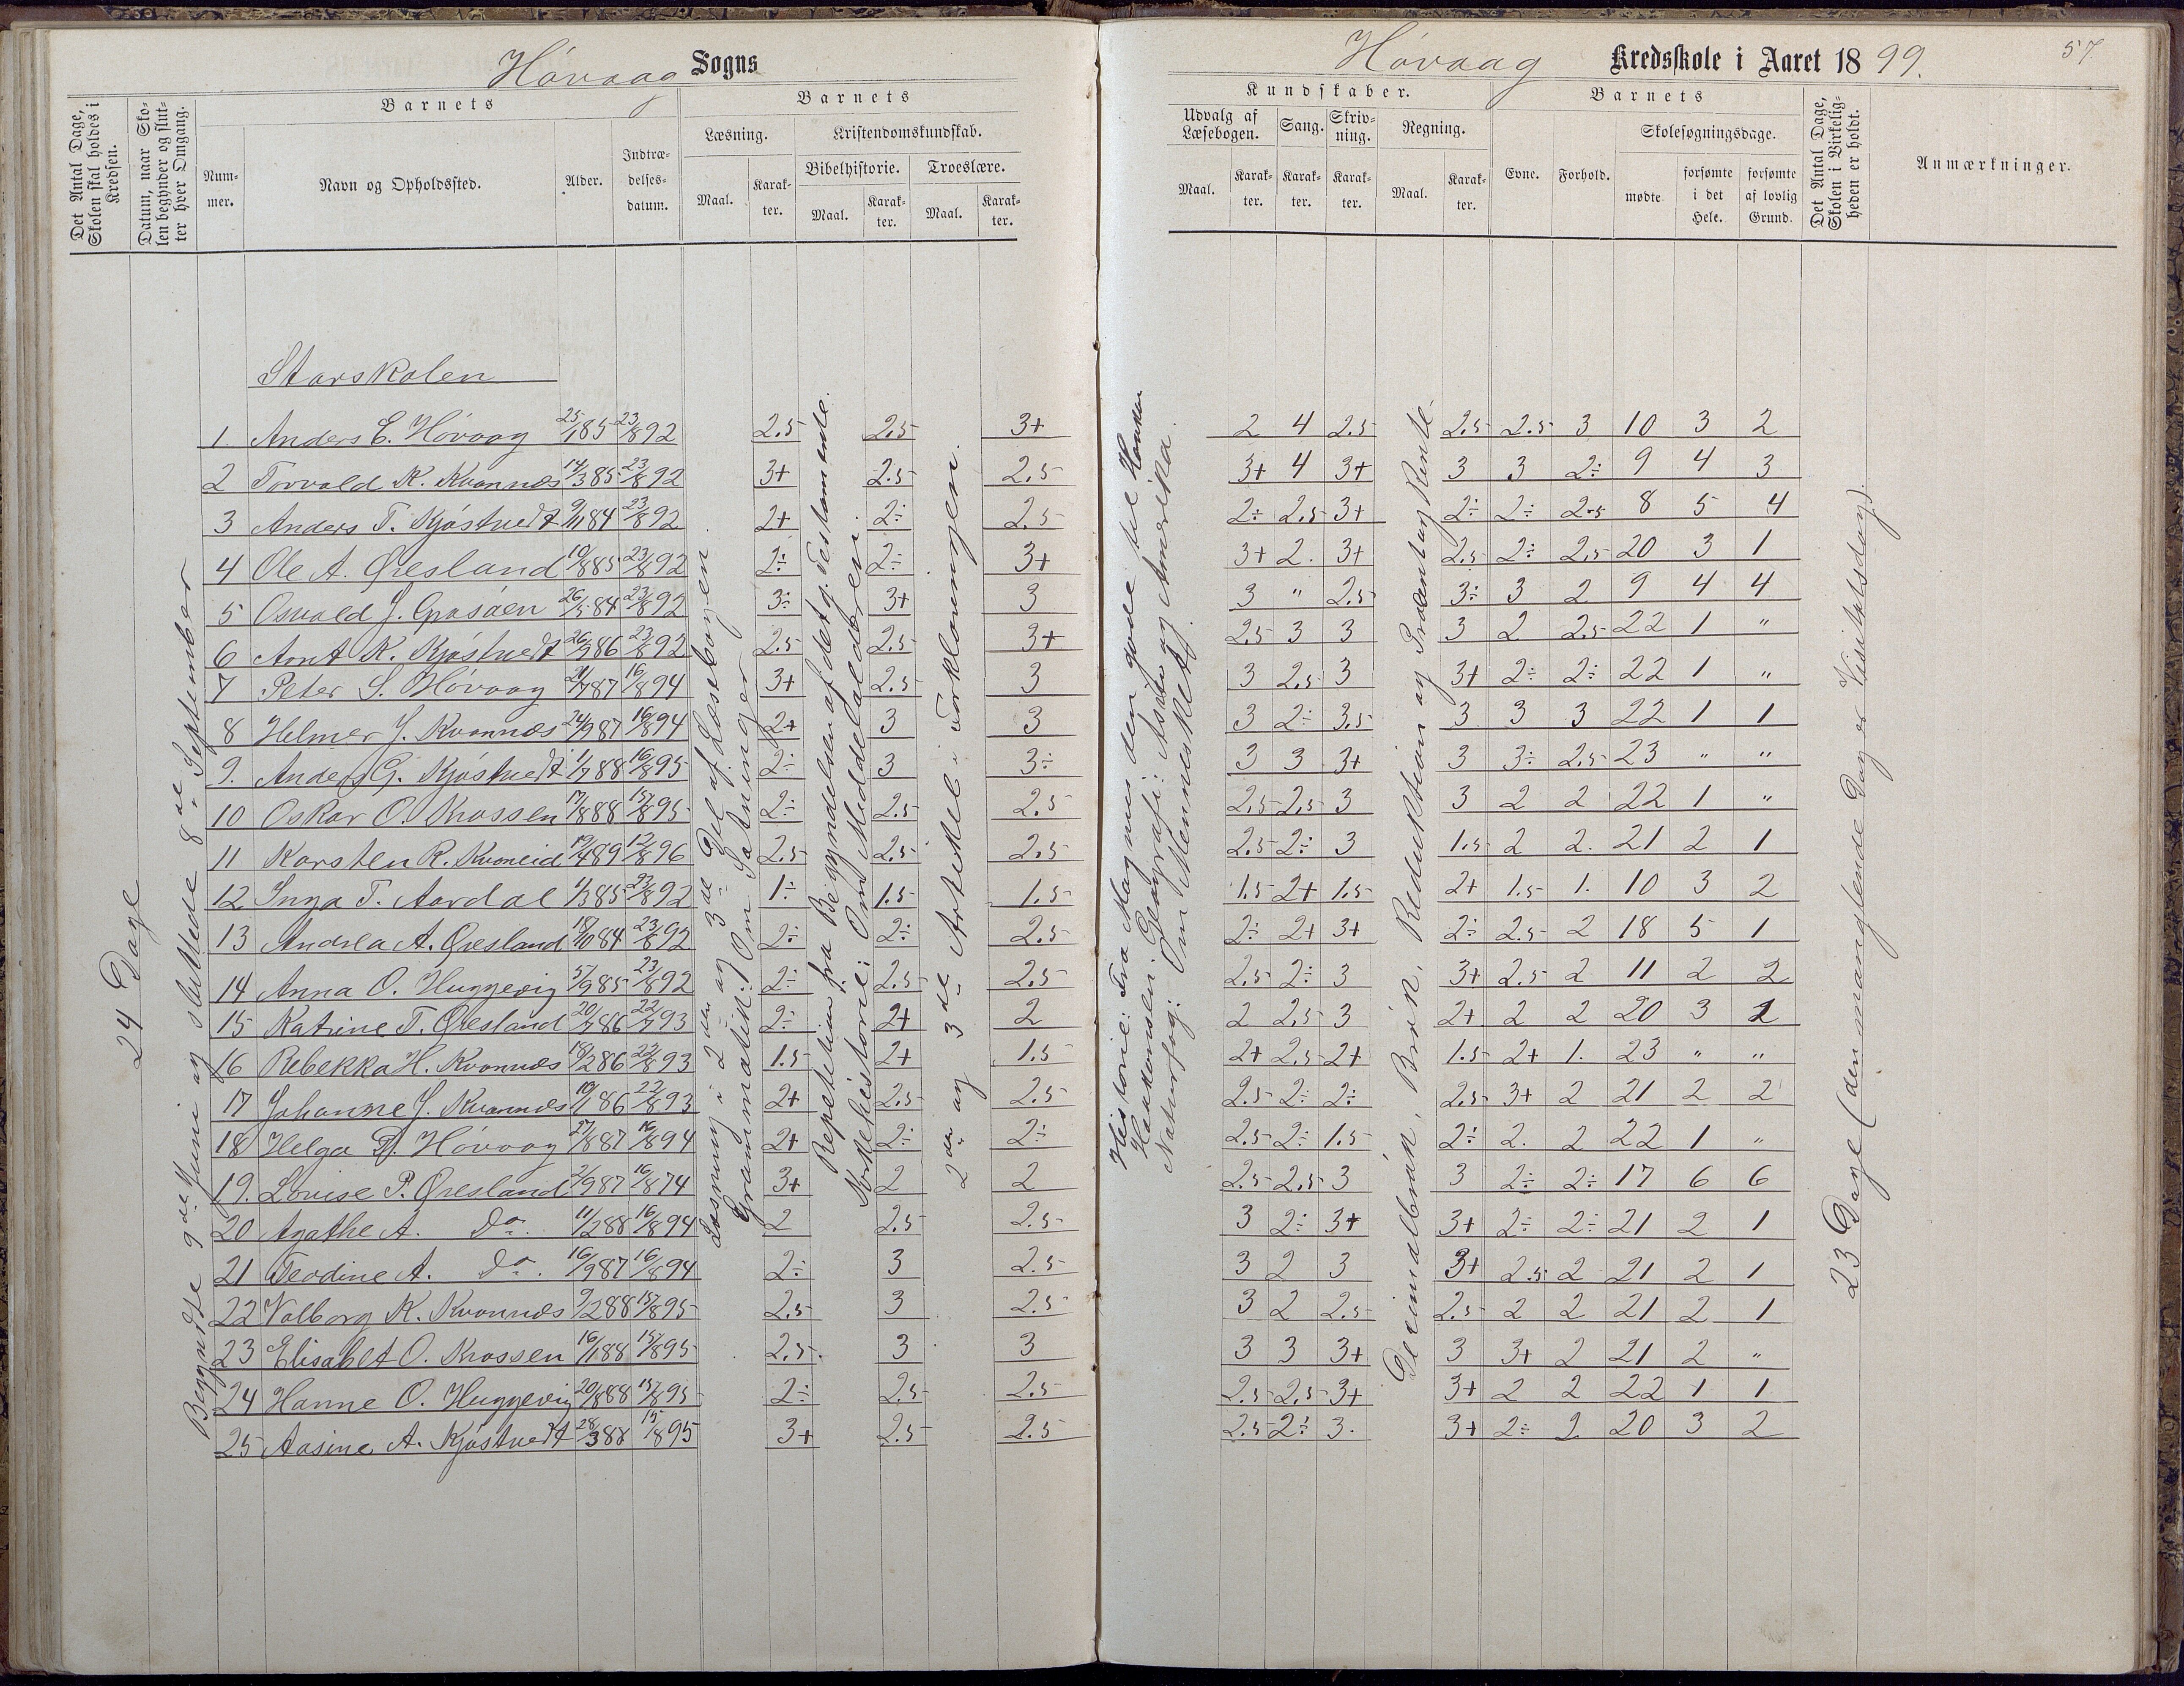 Høvaag Sogns
Høvaag Kredsskole i Aaret 1899.
57
Det Antal Dage, Skolen skal holdes i Kredsen.
Datum, naar Skolen begynder og slutter hver Omgang.
Barnets
Nummer.
Navn og Opholdssted.
Alder.
Indtrædelsesdatum.
Barnets
Læsning.
Maal.
Karakter.
Kristendomskundskab.
Bibelhistorie.
Maal.
Karakter.
Troeslære.
Maal.
Karakter.
Kundskaber.
Udvalg af Læsebogen.
Maal.
Karakter.
Sang.
Karakter.
Skrivning.
Karakter.
Regning.
Maal.
Karakter.
Barnets
Evne.
Forhold.
Skolesøgningsdage.
mødte.
forsømte i det Hele.
forsømte af lovlig Grund.
Det Antal Dage, Skolen i Virkeligheden er holdt.
Anmærkninger.
24 Dage
Begyndte 9de Juni og sluttede 8de September
Storskolen
Læsning i 2den og 3de Del af Læsebogen.
Grammatik: Om Sætninger
Repetition fra Begyndelsen af det g. Testamente.
Kirkehistorie: Om Middelalderen.
2den og 3de Artikel i Forklaringen.
Historie: Fra Magnus den gode til Haakon Haakonsen. Geografi: Asien og Amerika.
Naturfag: Om Mennesket.
Decimalbrøk, Brøk, Reduktion og Procent og Rente
23 Dage (den manglende Dag er Visitatsdag).
1 Anders E. Høvaag 25/1 85 23/8 92 2.5 2.5 3+ 2 4 2.5 2.5 2.5 3 10 3 2
2 Torvald K. Kvannes 14/3 85 23/8 92 3+ 2.5 2.5 3+ 4 3+ 3 3 2÷ 9 4 3
3 Anders T. Kjøstvedt 9/11 84 23/8 92 2+ 2÷ 2.5 2÷ 2.5 3+ 2÷ 2÷ 2.5 8 5 4
4 Ole A. Øresland 10/8 85 23/8 92 2÷ 2÷ 3+ 3+ 2. 3+ 2.5 2÷ 2.5 20 3 1
5 Osvald J. Grasåen 26/5 84 23/8 92 3÷ 3+ 3 3 " 2.5 3÷ 3 2 9 4 4
6 Aont K. Kjøstvedt 26/9 86 23/8 92 2.5 2.5 3+ 2.5 3 3 3 2 2.5 22 1 "
7 Peter S. Høvaag 21/7 87 16/8 94 3+ 2.5 3 3 2.5 3 3+ 2÷ 2÷ 22 1 "
8 Helmer J. Kvannes 24/9 87 16/8 94 2+ 3 3 3 2÷ 3.5 3 3 3 22 1 1
9. Anders G. Kjøstvedt 1/7 88 16/8 95 2÷ 3 3÷ 3 3 3+ 3 3÷ 2.5 23 " "
10 Oskar O. Krossen 17/8 88 15/8 95 2÷ 2.5 2.5 2.5 2.5 3 3 2 2 22 1 "
11 Karsten R. Kvoneid 19/4 89 12/8 96 2.5 2.5 2.5 2.5 2÷ 3 1.5 2 2. 21 2 1
12 Inga T. Aardal 1/3 85 23/8 92 1÷ 1.5 1.5 1.5 2+ 1.5 2+ 1.5 1. 10 3 2
13 Andrea A. Øresland 18/10 84 23/8 92 2÷ 2÷ 2.5 2÷ 2+ 3+ 2÷ 2.5 2 18 5 1
14 Anna O. Huggevig 5/9 85 23/8 92 2÷ 2.5 2.5 2.5 2÷ 3 3+ 2.5 2 11 2 2
15 Katrine T. Øresland 20/7 86 22/7 93 2÷ 2+ 2 2 2.5 3 2+ 2 2 20 3 1
16 Rebekka H. Kvannes 18/2 86 22/8 93 1.5 2+ 1.5 2+ 2.5 2+ 1.5 2+ 1. 23 " "
17 Johanne J. Kvannes 10/1 86 22/8 93 2+ 2.5 2.5 2.5 2÷ 2÷ 2.5 3+ 2 21 2 2
18 Helga D. Høvaag 27/8 87 16/8 94 2+ 2÷ 2÷ 2.5 2÷ 1.5 2÷ 2. 2 22 1 "
19. Lovise P. Øresland 2/9 87 16/8 74 3+ 2 2 2.5 2.5 3 3 2÷ 2÷ 17 6 6
20 Agathe A. Do. 11/2 88 16/8 94 2 2.5 2.5 3 2÷ 3+ 3+ 2÷ 2÷ 21 2 1
21 Teodine A. do. 16/9 87 16/8 94 2÷ 3 2.5 3 2 3 3+ 2.5 2 21 2 1
22 Valborg K. Kvannes 9/2 88 15/8 95 2.5 3 2.5 3 2 2.5 2.5 2 2 21 2 1
23 Elisabet O. Krossen 16/1 88 15/8 95 2.5. 3 3 3 3 3+ 3 3+ 2 21 2 "
24 Hanne O. Huggevig 20/8 88 15/8 95 2÷ 2.5 2.5 2.5 2.5 3+ 3+ 2 2 22 1 1
25 Aasine A. Kjøstvedt 28/3 88 15/8 95 3+ 2.5 2.5 2.5 2÷ 3. 3+ 2÷ 2 20 3 2